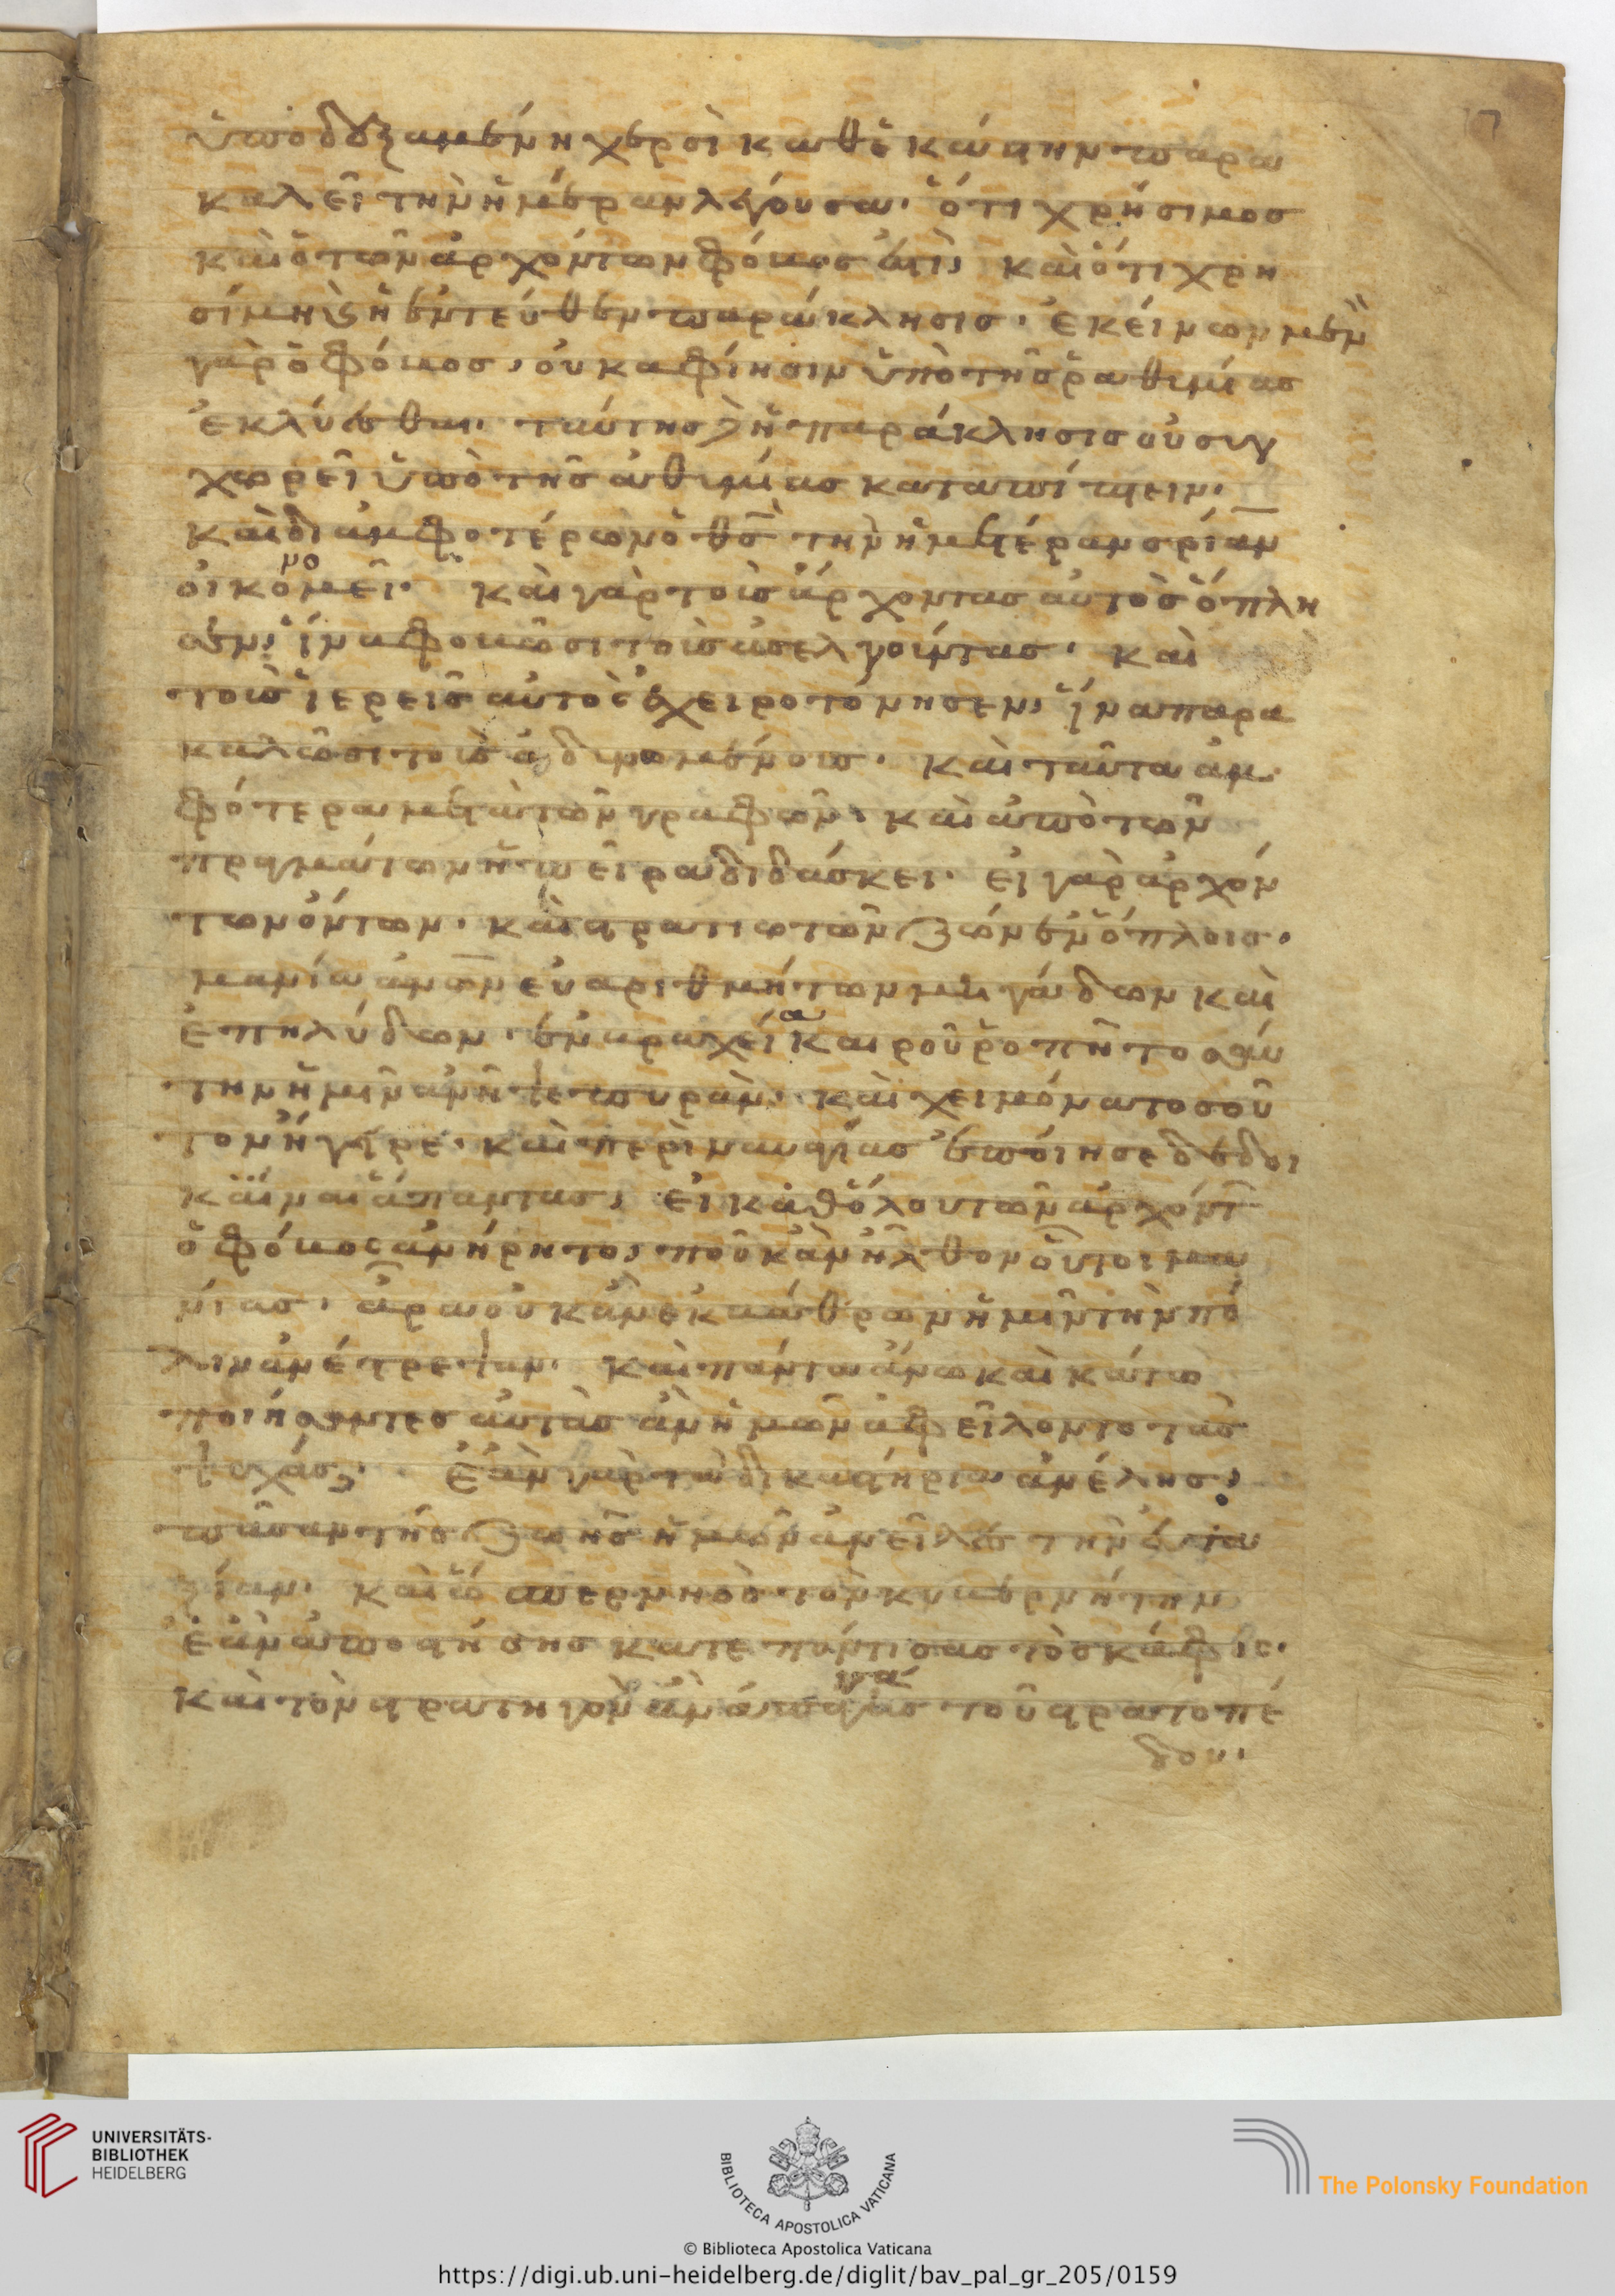 ὑποδεξαμένη χερσὶ καθ' ἑκάστην παρα
καλεῖ τὴν ἡμέραν λέγουσα· ὅτι χρήσιμοσ
καὶ ὁ τῶν ἀρχόντων φόβος ἐστὶ, καὶ ὅτι χρη
σίμη καὶ ἡ ἐντεύθεν παράκλησισ. ἐκείνων μὲν
γὰρ ὁ φόβοσ, οὐκ ἀφίησιν ὑπὸ τῆσ ῥαθυμίασ
ἐκλύεσθαι. ταύτησ δὲ ἡ παράκλησισ οὐ συγ
χωρεῖ ὑπὸ τῆσ ἀθυμίασ καταπίπτειν.
καὶ δι ἀμφοτέρων ὁ θσ τὴν ἡμετέραν σρίαν
οἰκονομεῖ. καὶ γὰρ τοὺσ ἄρχοντασ αὐτὸσ ὅπλι
σεν, ἵνα φοβῶσι τοὺσ ἀσελγοῦντασ. καὶ
τοὺσ ἱερεῖσ αὐτὸς ἐχειροτόνησεν, ἵνα παρα
καλῶσι τοὺσ ὀδυνομένουσ. καὶ ταῦτα ἀμ
φότερα μετὰ τῶν γραφῶν. καὶ ἀπὸ τῶν
πραγμάτων ἡ πεῖρα διδάσκει. εἰ γὰρ ἀρχόν
των ὄντων. καὶ στρατιωτῶν ζώντων ἐν ὅπλοισ.
μανία ἀνδρῶν εὐαριθμήτων μιγάδων καὶ
ἐπηλύδων. ἐν βραχεία καιροῦ ῥοπῆ τοσαύ
την ἡμῖν ἀνῆψε πυράν. καὶ χειμῶνα τοσοῦ
τον ἤγειρε. καὶ περὶ ναυαγίασ ἐποίησε δεδοι
κέναι ἅπαντασ, εἰ καθόλου τῶν ἀρχόντ
ὁ φόβος ἀνήρητο, ποῦ κἂν ἦλθον οὗτοι μα
νίασ. ἆρα οὐκ ἂν ἐκ βάθρων ἡμῖν τὴν πό
λιν ἀνέτρεψαν. καὶ πάντα ἄνω καὶ κάτω
ποιήσαντεσ αὐτὰσ ἂν ἡμῶν ἀφείλοντο τὰσ
ψυχάσ; ἐὰν γὰρ τὰ δικαστήρια ἀνέλησ,
πᾶσαν τῆσ ζωῆσ ἡμῶν ἀνεῖλεσ τὴν εὐτα
ξίαν. καὶ ὥσπερ νηὸσ τὸν κυβερνήτην
ἐὰν ἀποστήσησ κατεπόντισασ τὸ σκάφος.
καὶ τὸν στρατηγὸν ἂν ἀπαγάγησ τοῦ στρατοπέ
δου.
17
UNIVERSITÄTS-
BIBLIOTHEK
HEIDELBERG
BIBLIOTECA APOSTOLICA VATICANA
The Polonsky Foundation
© Biblioteca Apostolica Vaticana
https://digi.ub.uni-heidelberg.de/diglit/bav_pal_gr_205/0159